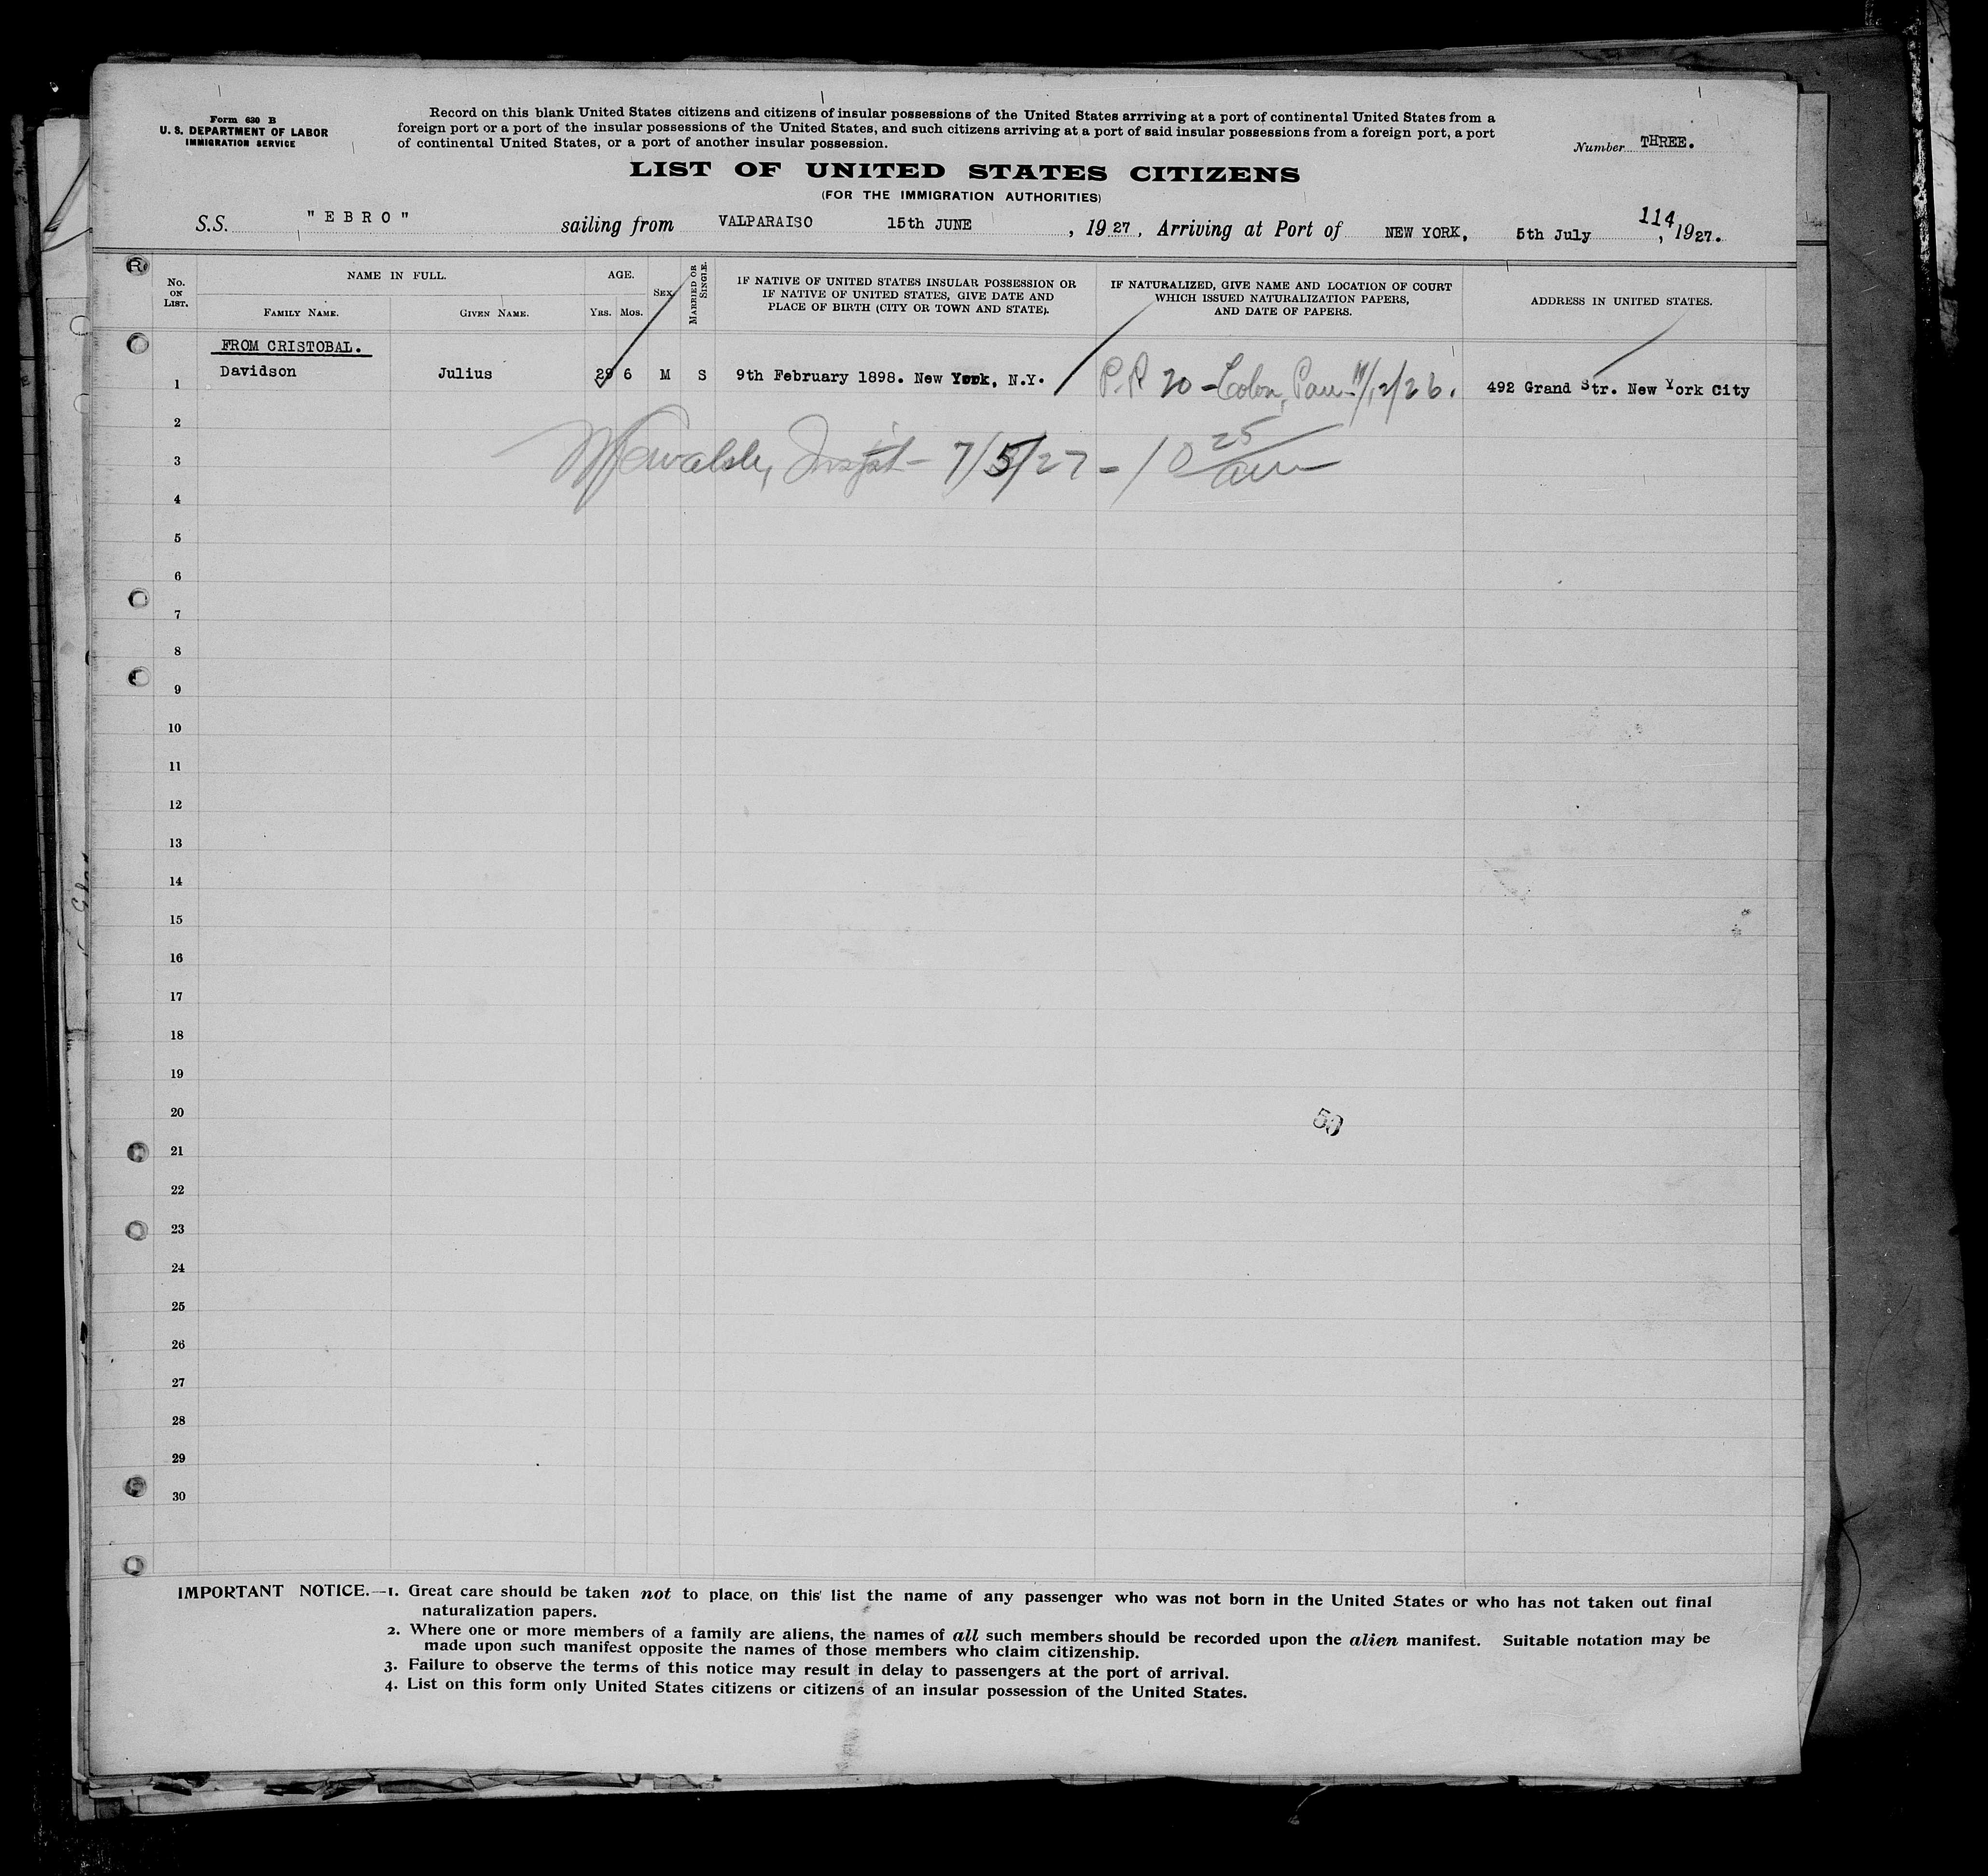 Form 630 B
U. S. DEPARTMENT OF LABOR
IMMIGRATION SERVICE
Record on this blank United States citizens and citizens of insular possessions of the United States arrriving at a port of continental United States from a
foreign port or a port of the insular possessions of the United States, and such citizens arriving at a port of said insular possessions from a foreign port, a port
of continental United States, or a port of another insular possession.
Number THREE.
LIST OF UNITED STATES CITIZENS
(FOR THE IMMIGRATION AUTHORITIES)
114
S.S. "EBRO" sailing from VALPARAISO 15th JUNE, 1927, Arriving at Port of NEW YORK, 5th July, 1927.
R
No. ON LIST.
NAME IN FULL.
FAMILY NAME. GIVEN NAME.
AGE.
YRS. MOS.
SEX
MARRIED OR SINGLE.
IF NATIVE OF UNITED STATES INSULAR POSSESSION OR
IF NATIVE OF UNITED STATES, GIVE DATE AND
PLACE OF BIRTH (CITY OR TOWN AND STATE).
IF NATURALIZED, GIVE NAME AND LOCATION OF COURT
WHICH ISSUED NATURALIZATION PAPERS,
AND DATE OF PAPERS.
ADDRESS IN UNITED STATES.
FROM CRISTOBAL.
1 Davidson Julius 29 6 M S 9th February 1898. New York, N.Y. P.P. 20 - Colon, Pan. 11/12/26. 492 Grand Str. New York City
2
3 7/5/27 - 10 25 am
4
5
6
7
8
9
10
11
12
13
14
15
16
17
18
19
20
50
21
22
23
24
25
26
27
28
29
30
IMPORTANT NOTICE.—1. Great care should be taken not to place on this list the name of any passenger who was not born in the United States or who has not taken out final
naturalization papers.
2. Where one or more members of a family are aliens, the names of all such members should be recorded upon the alien manifest. Suitable notation may be
made upon such manifest opposite the names of those members who claim citizenship.
3. Failure to observe the terms of this notice may result in delay to passengers at the port of arrival.
4. List on this form only United States citizens or citizens of an insular possession of the United States.